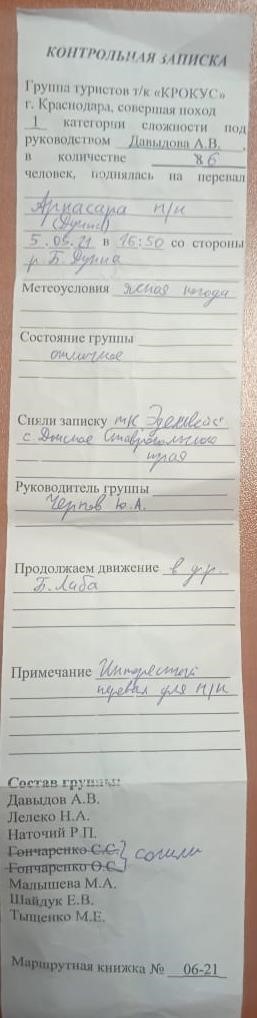 КОНТРОЛЬНАЯ ЗАПИСКА
Группа туристов т/к «КРОКУС»
г. Краснодара, совершая поход
1 категории сложности под
руководством Давыдова А.В.,
в количестве 6
человек, поднялась на перевал
Аркасара п/п
(Дукка)
5.05.21 в 16:50 со стороны
р. Б. Дукка
Метеоусловия ясная погода
Состояние группы
отличное
Сняли записку тк Эдельвейс
с. Донское Ставропольского
края
Руководитель группы
Чернов Ю.А.
Продолжаем движение в д.р.
Б. Лаба
Примечание Интересный
перевал для п/п
Состав группы:
Давыдов А.В.
Лелеко Н.А.
Наточий Р.П.
Гончаренко С.С.
Гончаренко О.С. сошли
Малышева М.А.
Шайдук Е.В.
Тыщенко М.Е.
Маршрутная книжка № 06-21